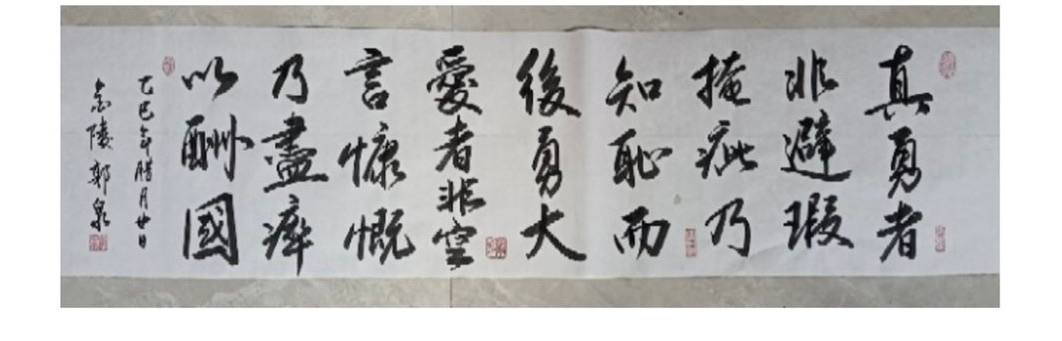 真勇者
非避瑕
掩疵乃
知恥而
後勇大
愛者非空
言慷慨
乃盡瘁
以酬國
乙巳年腊月廿日
嘉陵郭泉